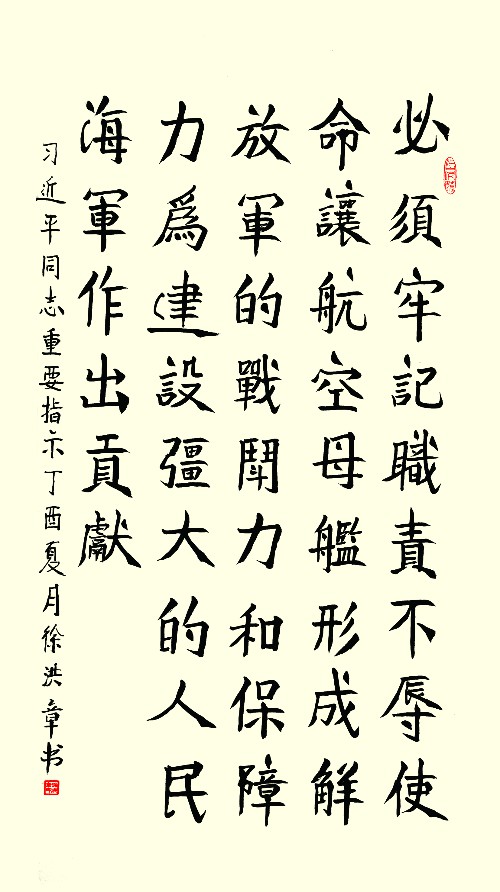 必須牢記職責不辱使
命讓航空母艦形成解
放軍的戰鬪力和保障
力爲建設彊大的人民
海軍作出貢獻
习近平同志重要指示丁酉夏月徐洪章书